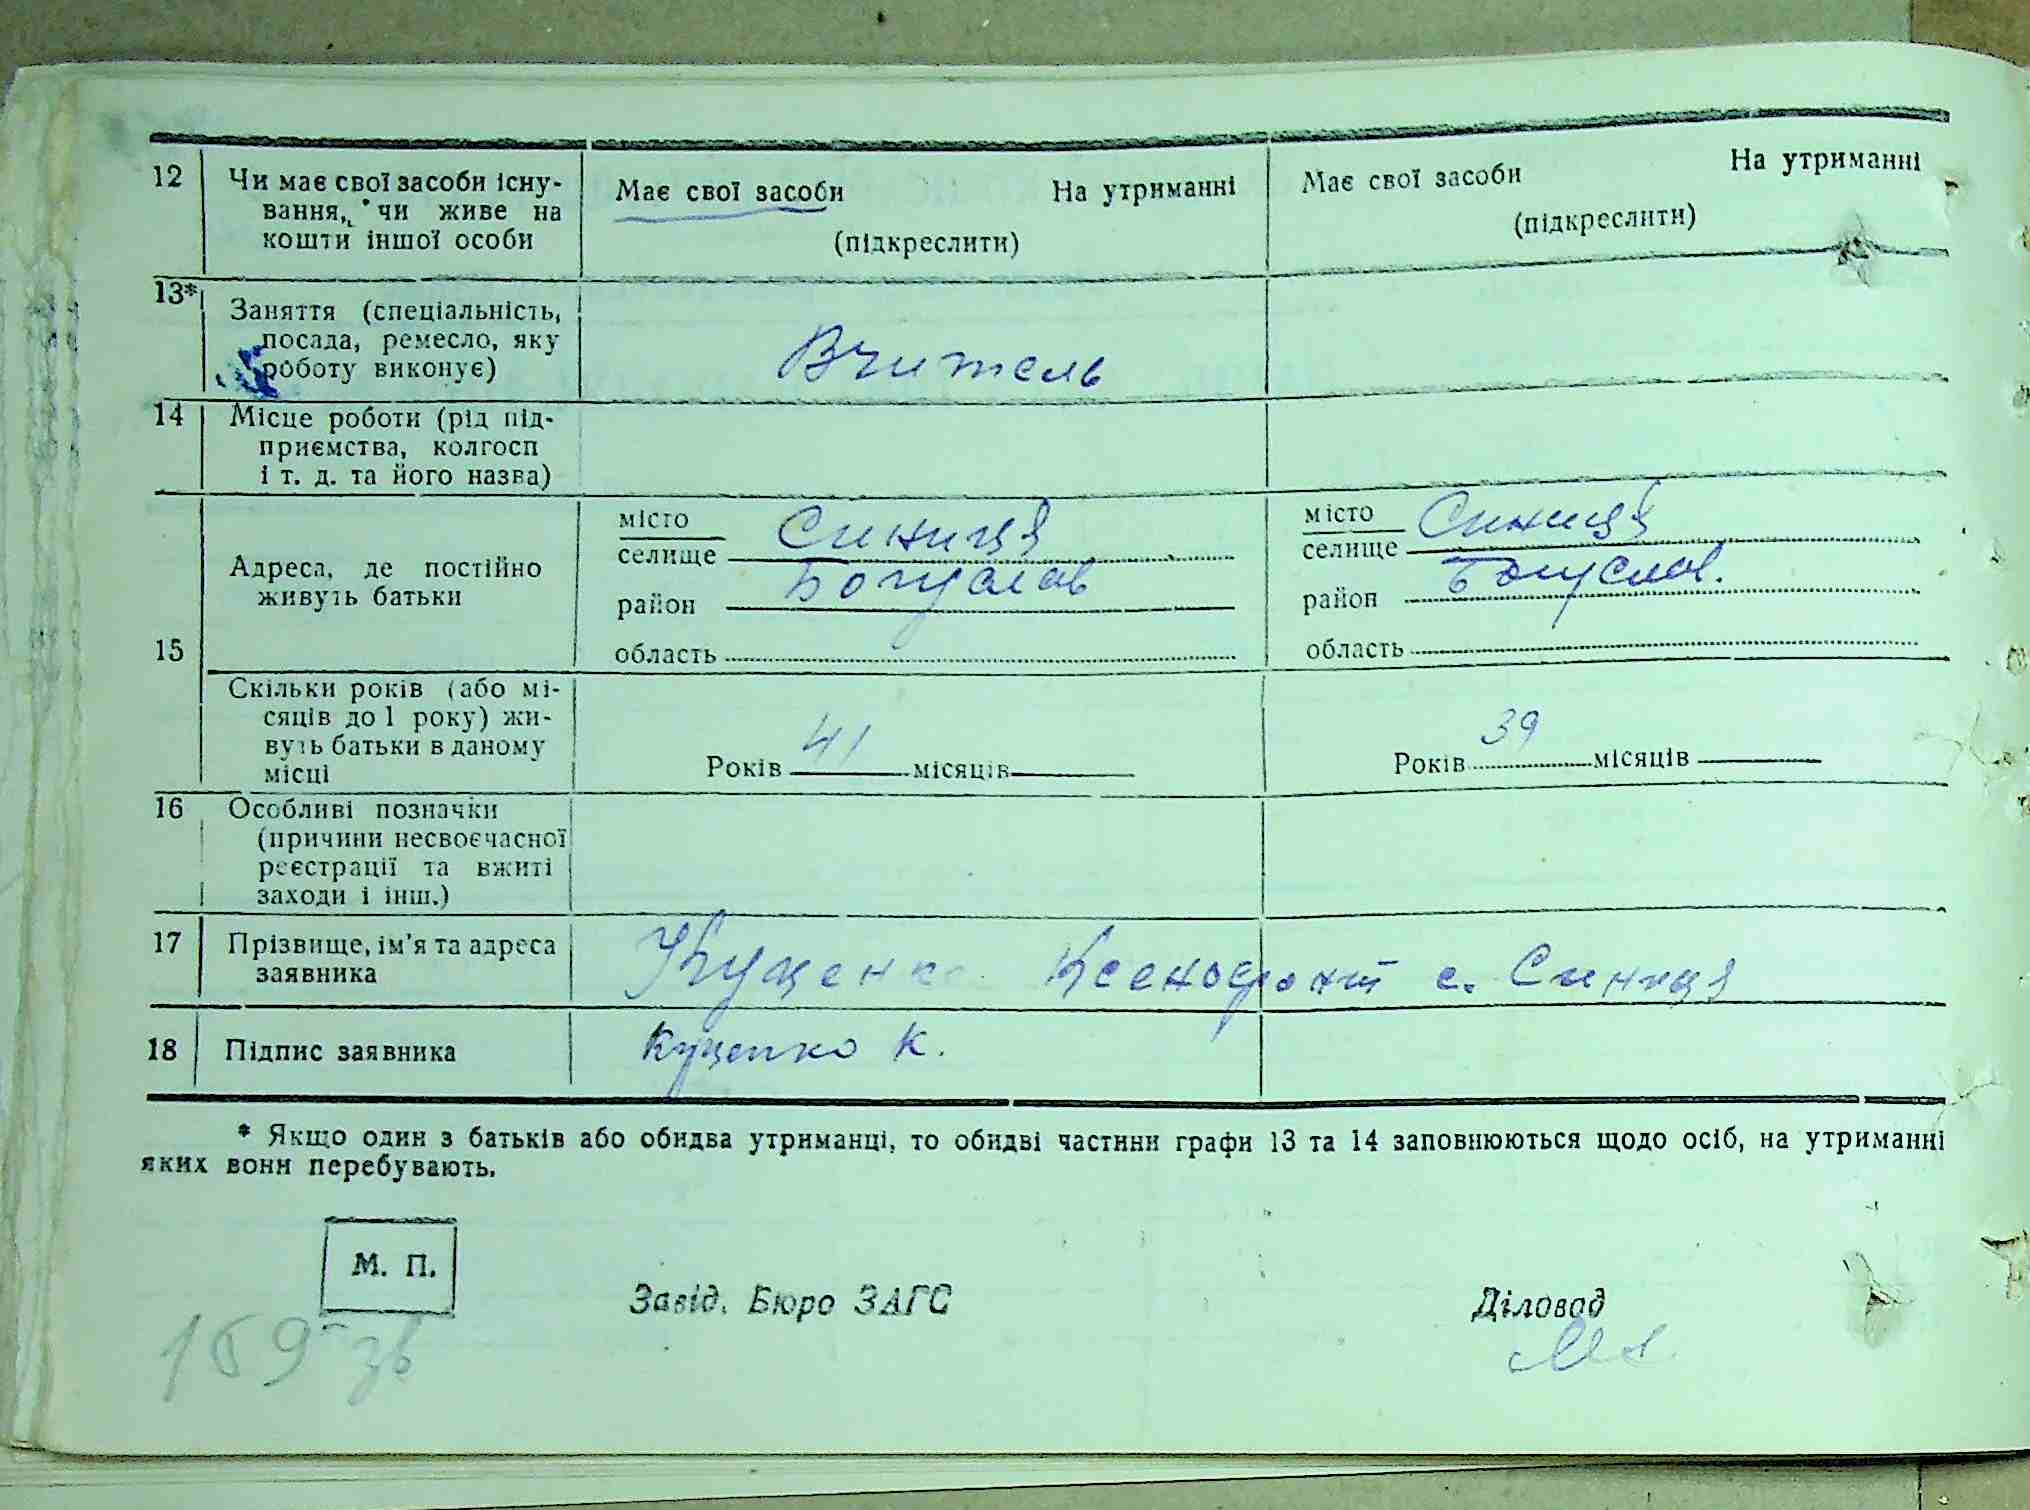 12 Чи має свої засоби існу-
вання, чи живе на
кошти іншої особи
Має свої засоби На утриманні
(підкреслити)
Має свої засоби На утриманні
(підкреслити)
13* Заняття (спеціальність,
посада, ремесло, яку
роботу виконує)
Вчитель
14 Місце роботи (рід під-
приємства, колгосп
і т. д. та його назва)
15
Адреса, де постійно
живуть батьки
місто
селище Синиця
район Богуслав
область
місто
селище Синиця
район Богуслав.
область
Скільки років (або мі-
сяців до 1 року) жи-
вуть батьки в даному
місці
Років 41 місяців
Років 39 місяців
16 Особливі позначки
(причини несвоєчасної
реєстрації та вжиті
заходи і інш.)
17 Прізвище, ім'я та адреса
заявника
Куценко Ксенофонт с. Синиця
18 Підпис заявника
Куценко К.
* Якщо один з батьків або обидва утриманці, то обидві частини графи 13 та 14 заповнюються щодо осіб, на утриманні
яких вони перебувають.
М. П.
Завід. Бюро ЗАГС
Діловод
169 зв